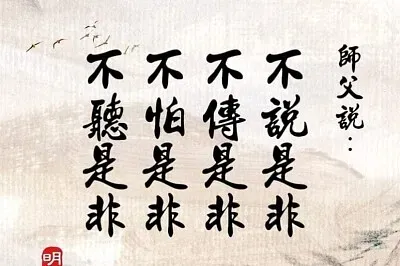 師父説：
不説是非
不傳是非
不怕是非
不聽是非
明